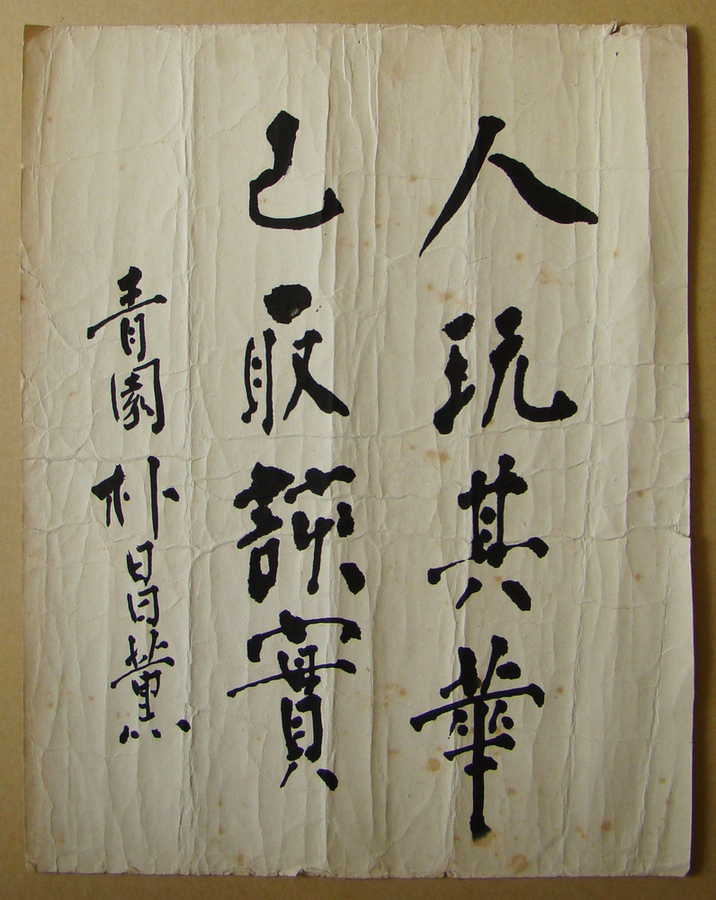 人玩其華
己取實
青園 朴昌薰